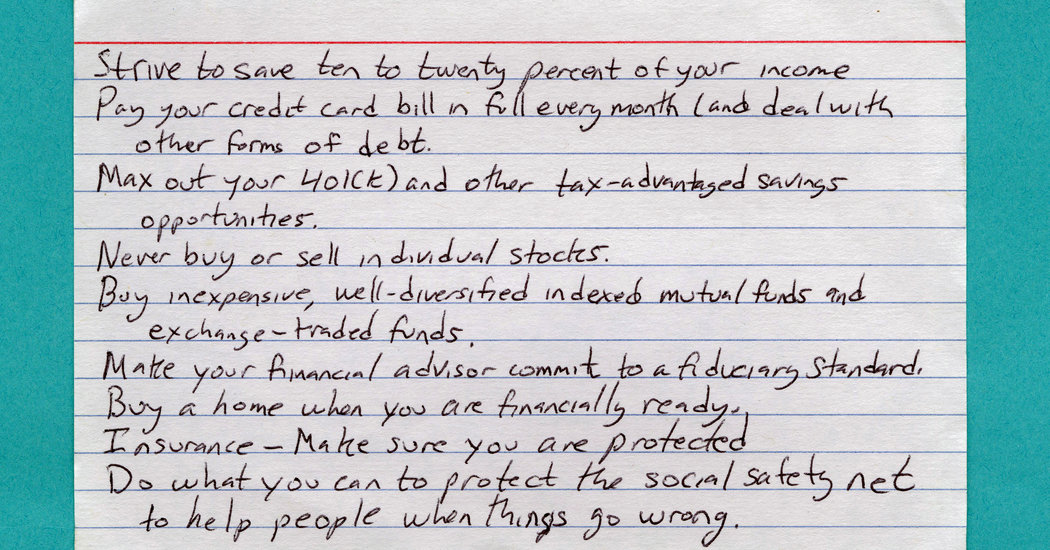 Strive to save ten to twenty percent of your income
Pay your credit card bill in full every month (and deal with
other forms of debt.
Max out your 401(k) and other tax-advantaged savings
opportunities.
Never buy or sell individual stocks.
Buy inexpensive, well-diversified indexed mutual funds and
exchange-traded funds.
Make your financial advisor commit to a fiduciary standard.
Buy a home when you are financially ready.
Insurance - Make sure you are protected
Do what you can to protect the social safety net
to help people when things go wrong.